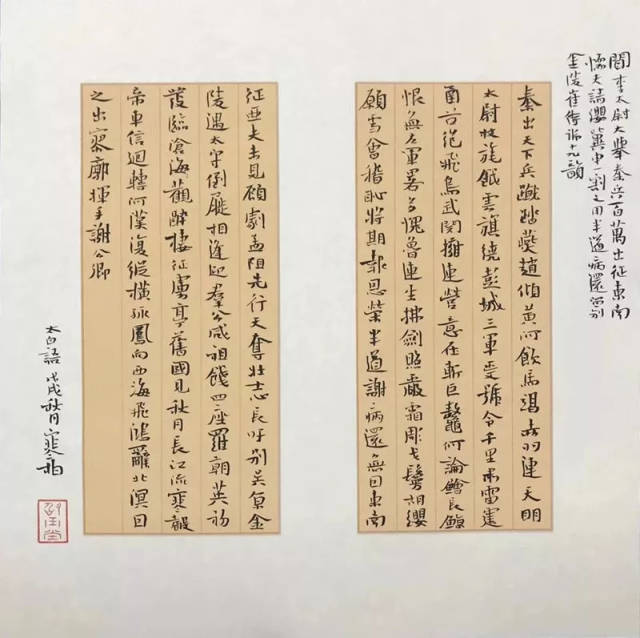 聞李太尉大舉秦兵百萬出征東南
懦夫請纓冀申一割之用半道病還留别
金陵崔侍御十九韻
秦出天下兵蹴踏燕趙傾黄河飲馬竭赤羽連天明
太尉杖旄鉞雲旗繞彭城三軍受號令千里肅雷霆
函谷絶飛鳥武関擁連營意在斬巨鼇何論鱠長鯨
恨無左車畧多愧魯連生拂劍照嚴霜彫戈鬘胡纓
願雪會稽恥將期報恩榮半道謝病還無因東南
征亞夫未見顧劇孟阻先行天奪壯士心長吁別吴京金
陵遇太守倒屣相逢迎羣公咸祖餞四座羅朝英初
發臨滄觀醉棲征虜亭舊國見秋月長江流寒聲
帝車信迴轉河漢復縱橫孤鳳向西海飛鴻辭北溟因
之出寥廓揮手謝公卿
太白語 戊戌秋月寒